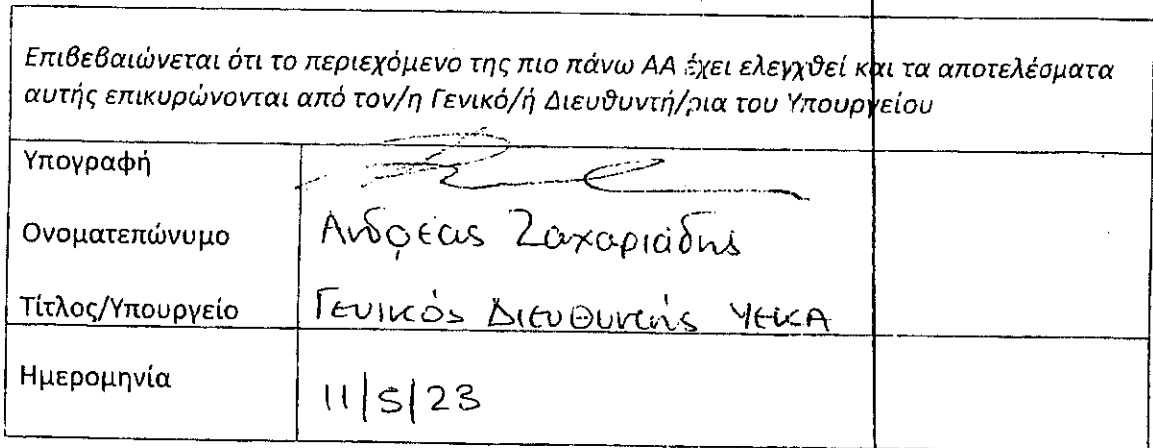 Επιβεβαιώνεται ότι το περιεχόμενο της πιο πάνω ΑΑ έχει ελεγχθεί και τα αποτελέσματα
αυτής επικυρώνονται από τον/η Γενικό/ή Διευθυντή/ρια του Υπουργείου
Υπογραφή
Ονοματεπώνυμο Ανδρέας Ζαχαριάδης
Τίτλος/Υπουργείο Γενικός Διευθυντής ΥΕΚΑ
Ημερομηνία 11/5/23